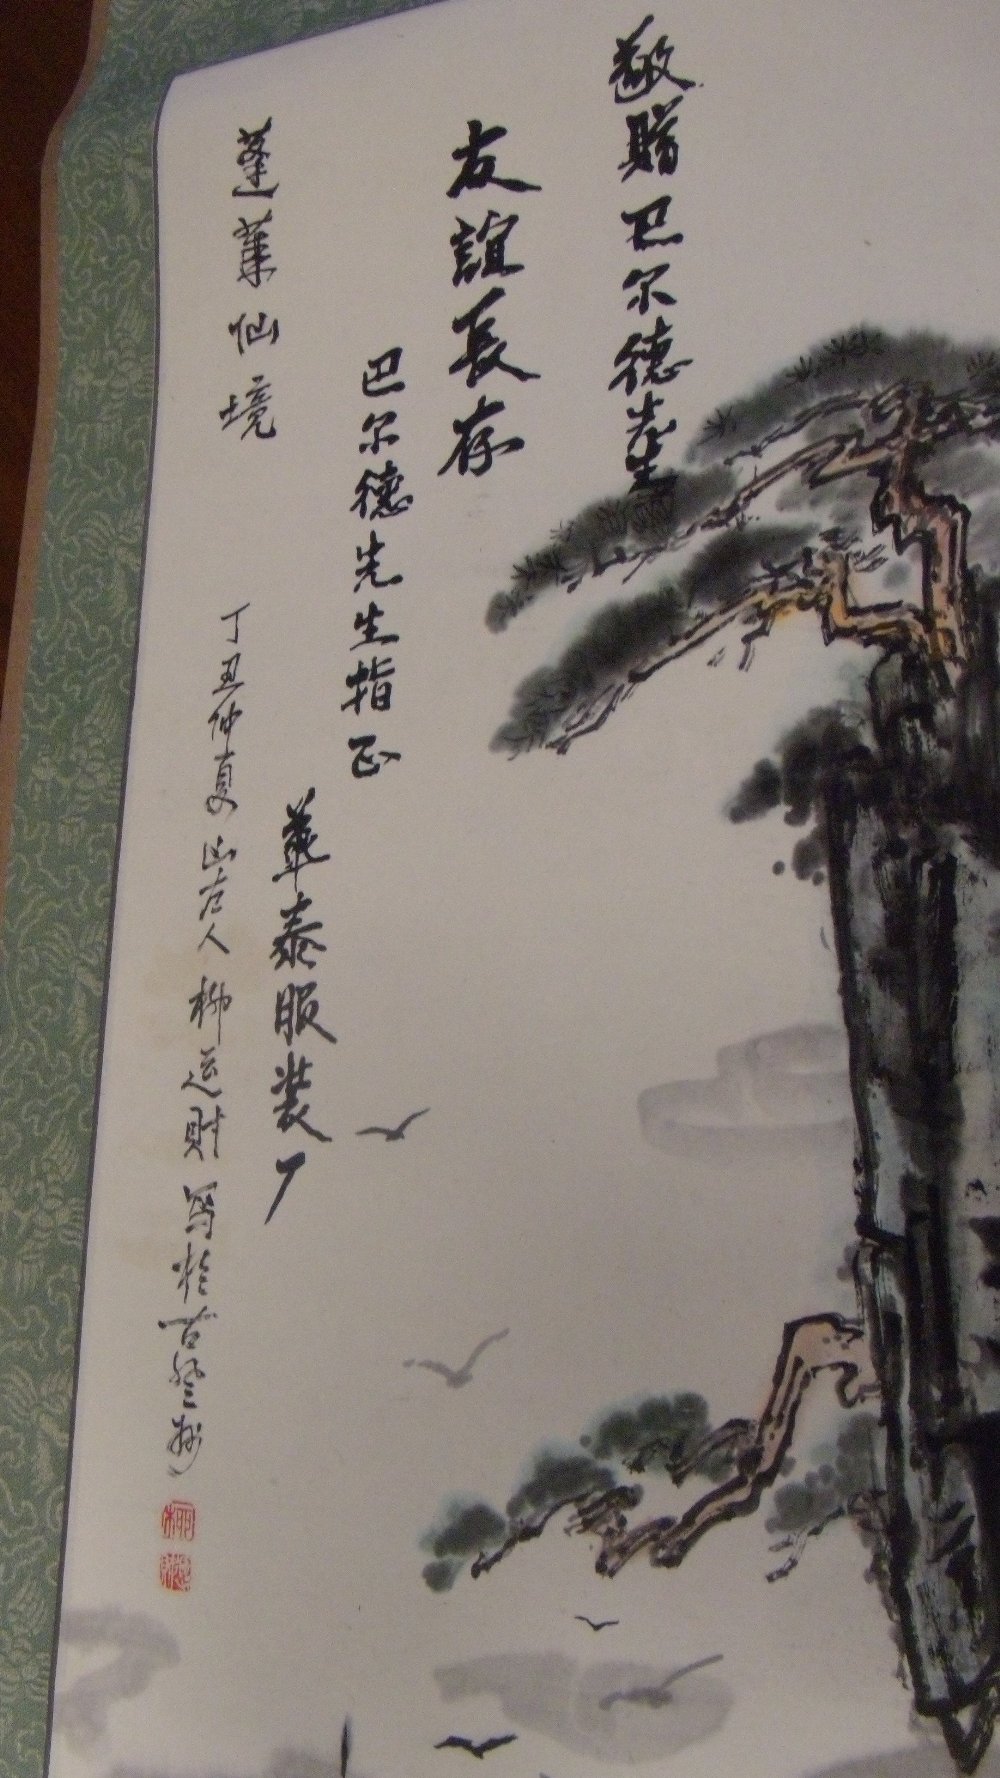 敬贈巴尔德先生
友誼長存
巴尔德先生指正
華泰服装厂
蓬莱仙境
丁丑仲夏 古人柳运財写於古登州